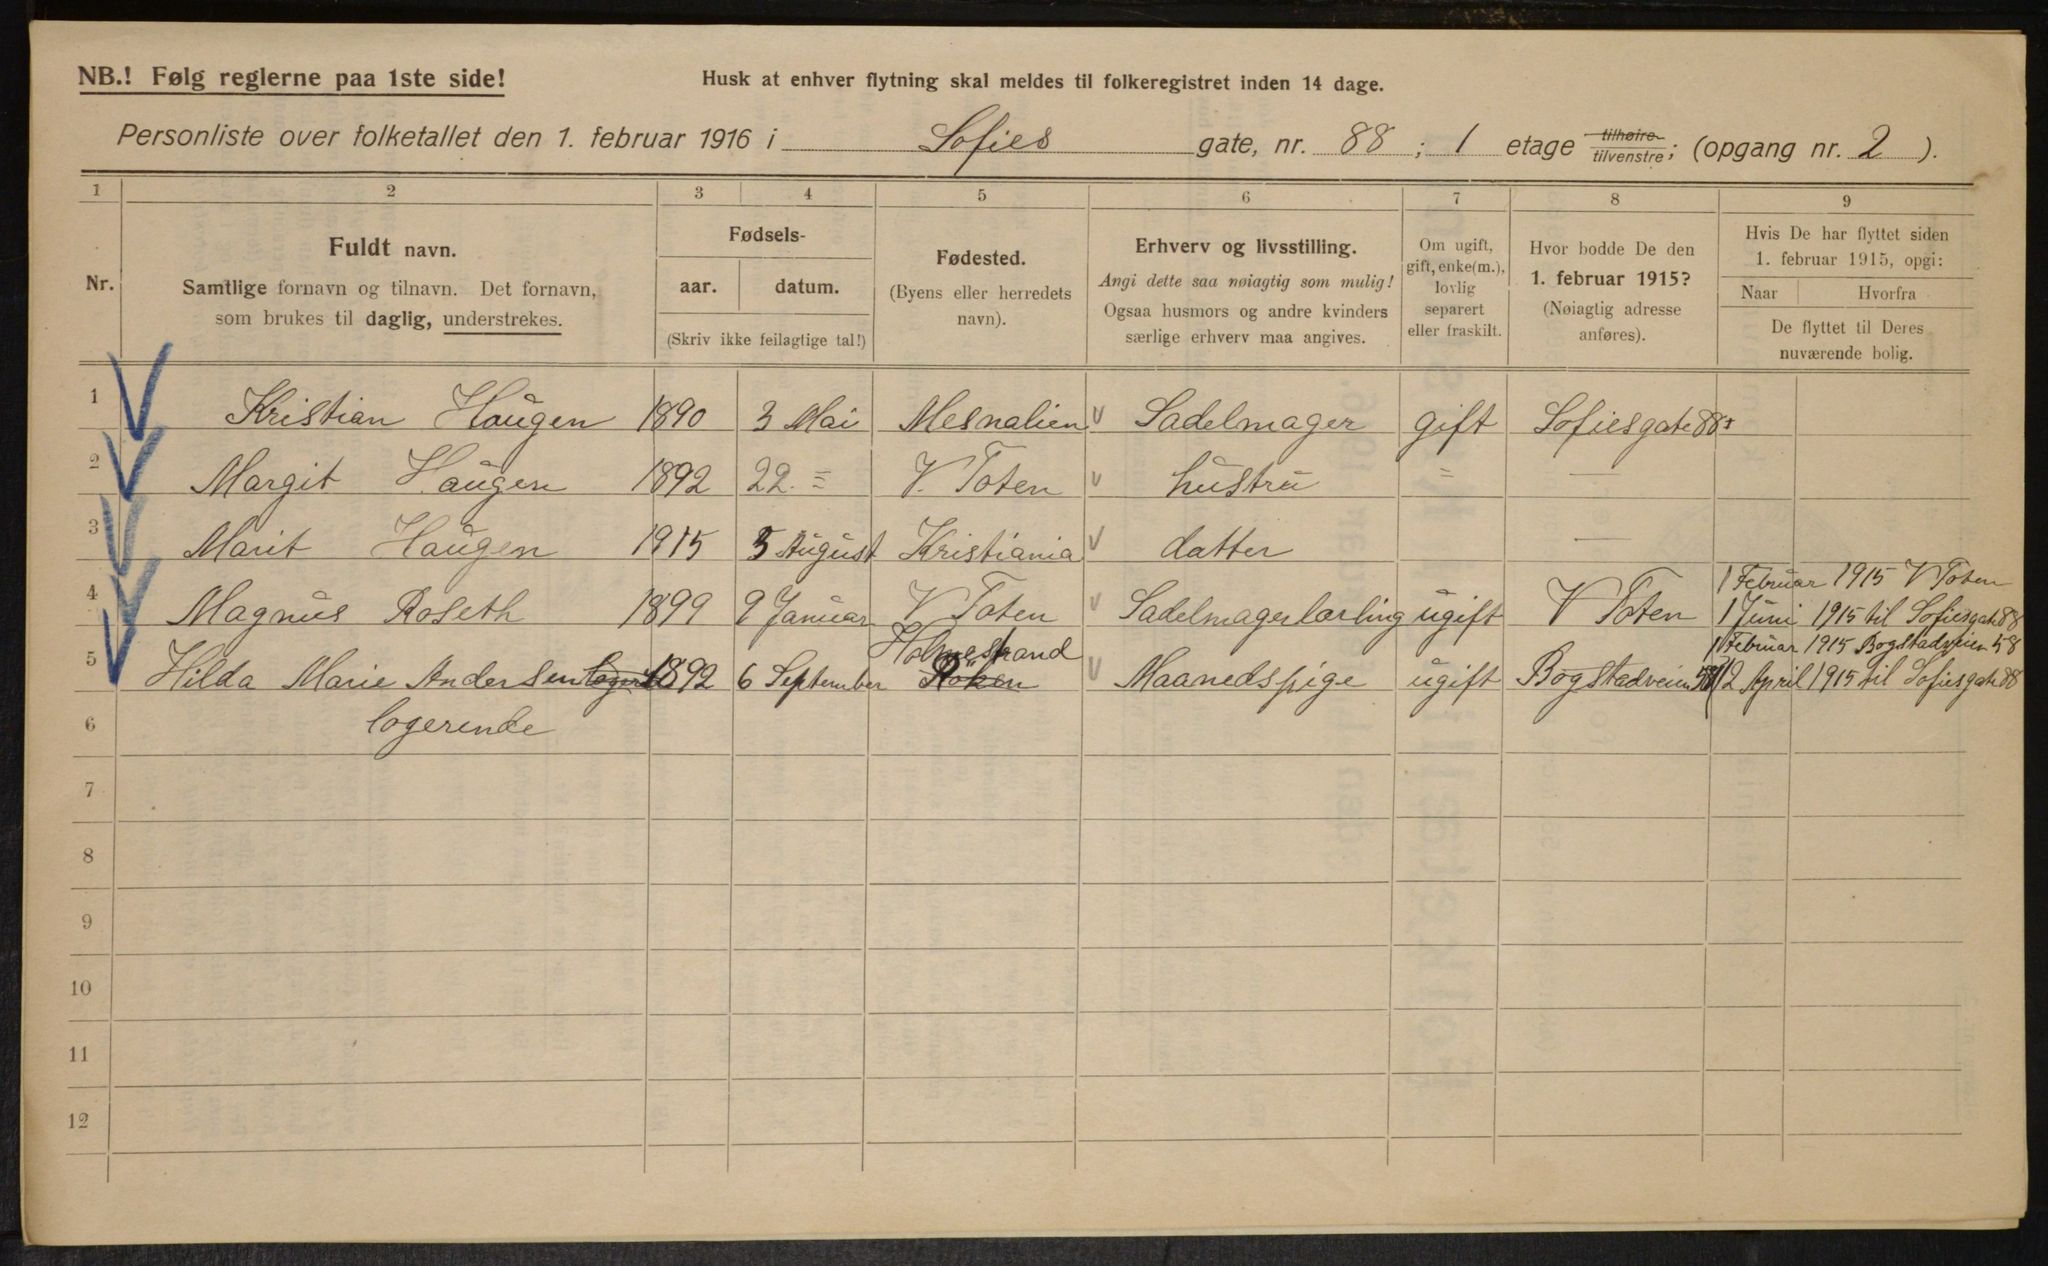 NB.! Følg reglerne paa 1ste side!
Husk at enhver flytning skal meldes til folkeregistret inden 14 dage.
Personliste over folketallet den 1. februar 1916 i Sofies gate, nr. 88 ; 1 etage tilhøire tilvenstre ; (opgang nr. 2 ).
1 2 3 4 5 6 7 8 9
Nr.
Fuldt navn.
Samtlige fornavn og tilnavn. Det fornavn,
som brukes til daglig, understrekes.
Fødsels-
aar. datum.
(Skriv ikke feilagtige tal!)
Fødested.
(Byens eller herredets
navn).
Erhverv og livsstilling.
Angi dette saa nøiagtig som mulig!
Ogsaa husmors og andre kvinders
særlige erhverv maa angives.
Om ugift,
gift, enke(m.),
lovlig
separert
eller fraskilt.
Hvor bodde De den
1. februar 1915?
(Nøiagtig adresse
anføres).
Hvis De har flyttet siden
1. februar 1915, opgi:
Naar Hvorfra
De flyttet til Deres
nuværende bolig.
1 Kristian Haugen 1890 3 Mai Mesnalien v Sadelmager gift Sofiesgate 88
2 Margit Haugen 1892 22. = V. Toten v hustru = —
3 Marit Haugen 1915 5 August Kristiania v datter —
1 Februar 1915 V Toten
4 Magnus Roseth 1899 9 Januar V Toten v Sadelmagerlærling ugift V Toten 1 Juni 1915 til Sofiesgate 88
Holmestrand 1 Februar 1915 Bogstadveien 58
5 Hilda Marie Andersen 1892 6 September Röken v Maanedspige ugift Bogstadveien 58 12 April 1915 til Sofiesgate 88
6 logerende
7
8
9
10
11
12